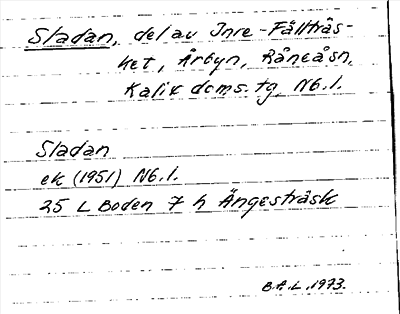 Sladan, del av Inre-Fällträs-
ket, Årbyn, Råneåsn,
Kalix doms. tg, Nb. l.
Sladan
ek (1951) Nb. l.
25 L Boden 7 h Ängesträsk
B.A.L. 1973.